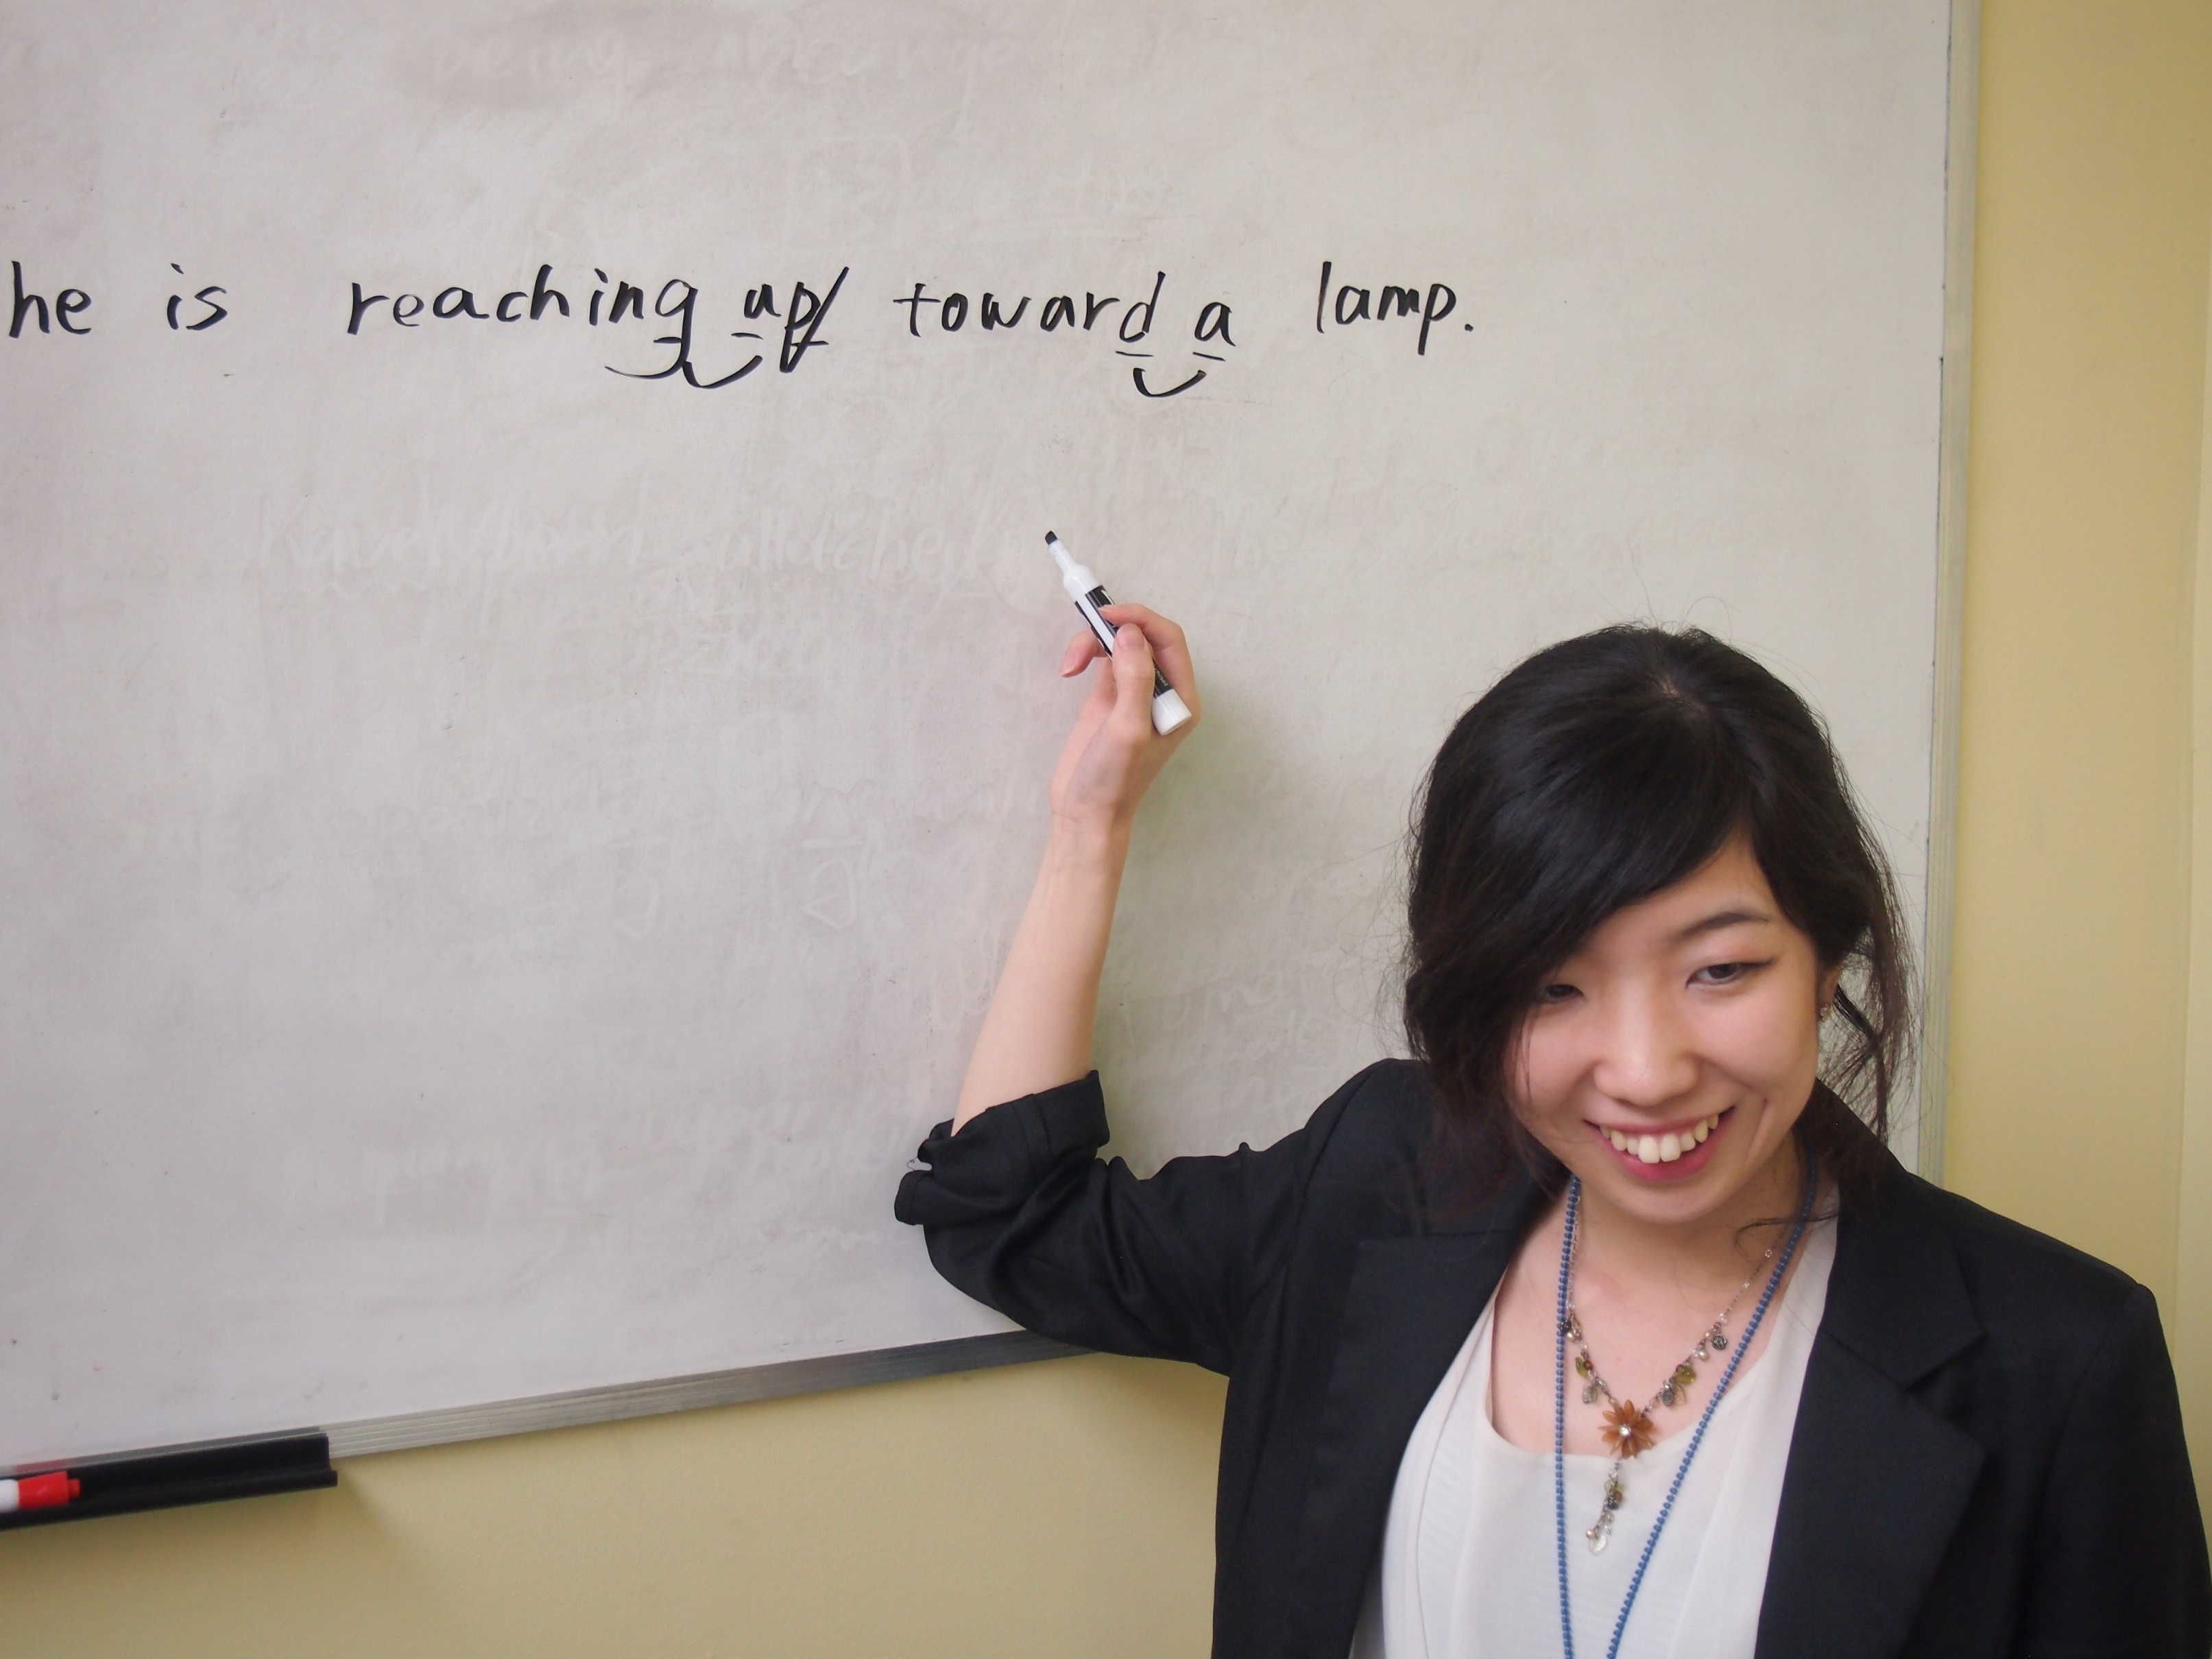 he is reaching up toward a lamp.